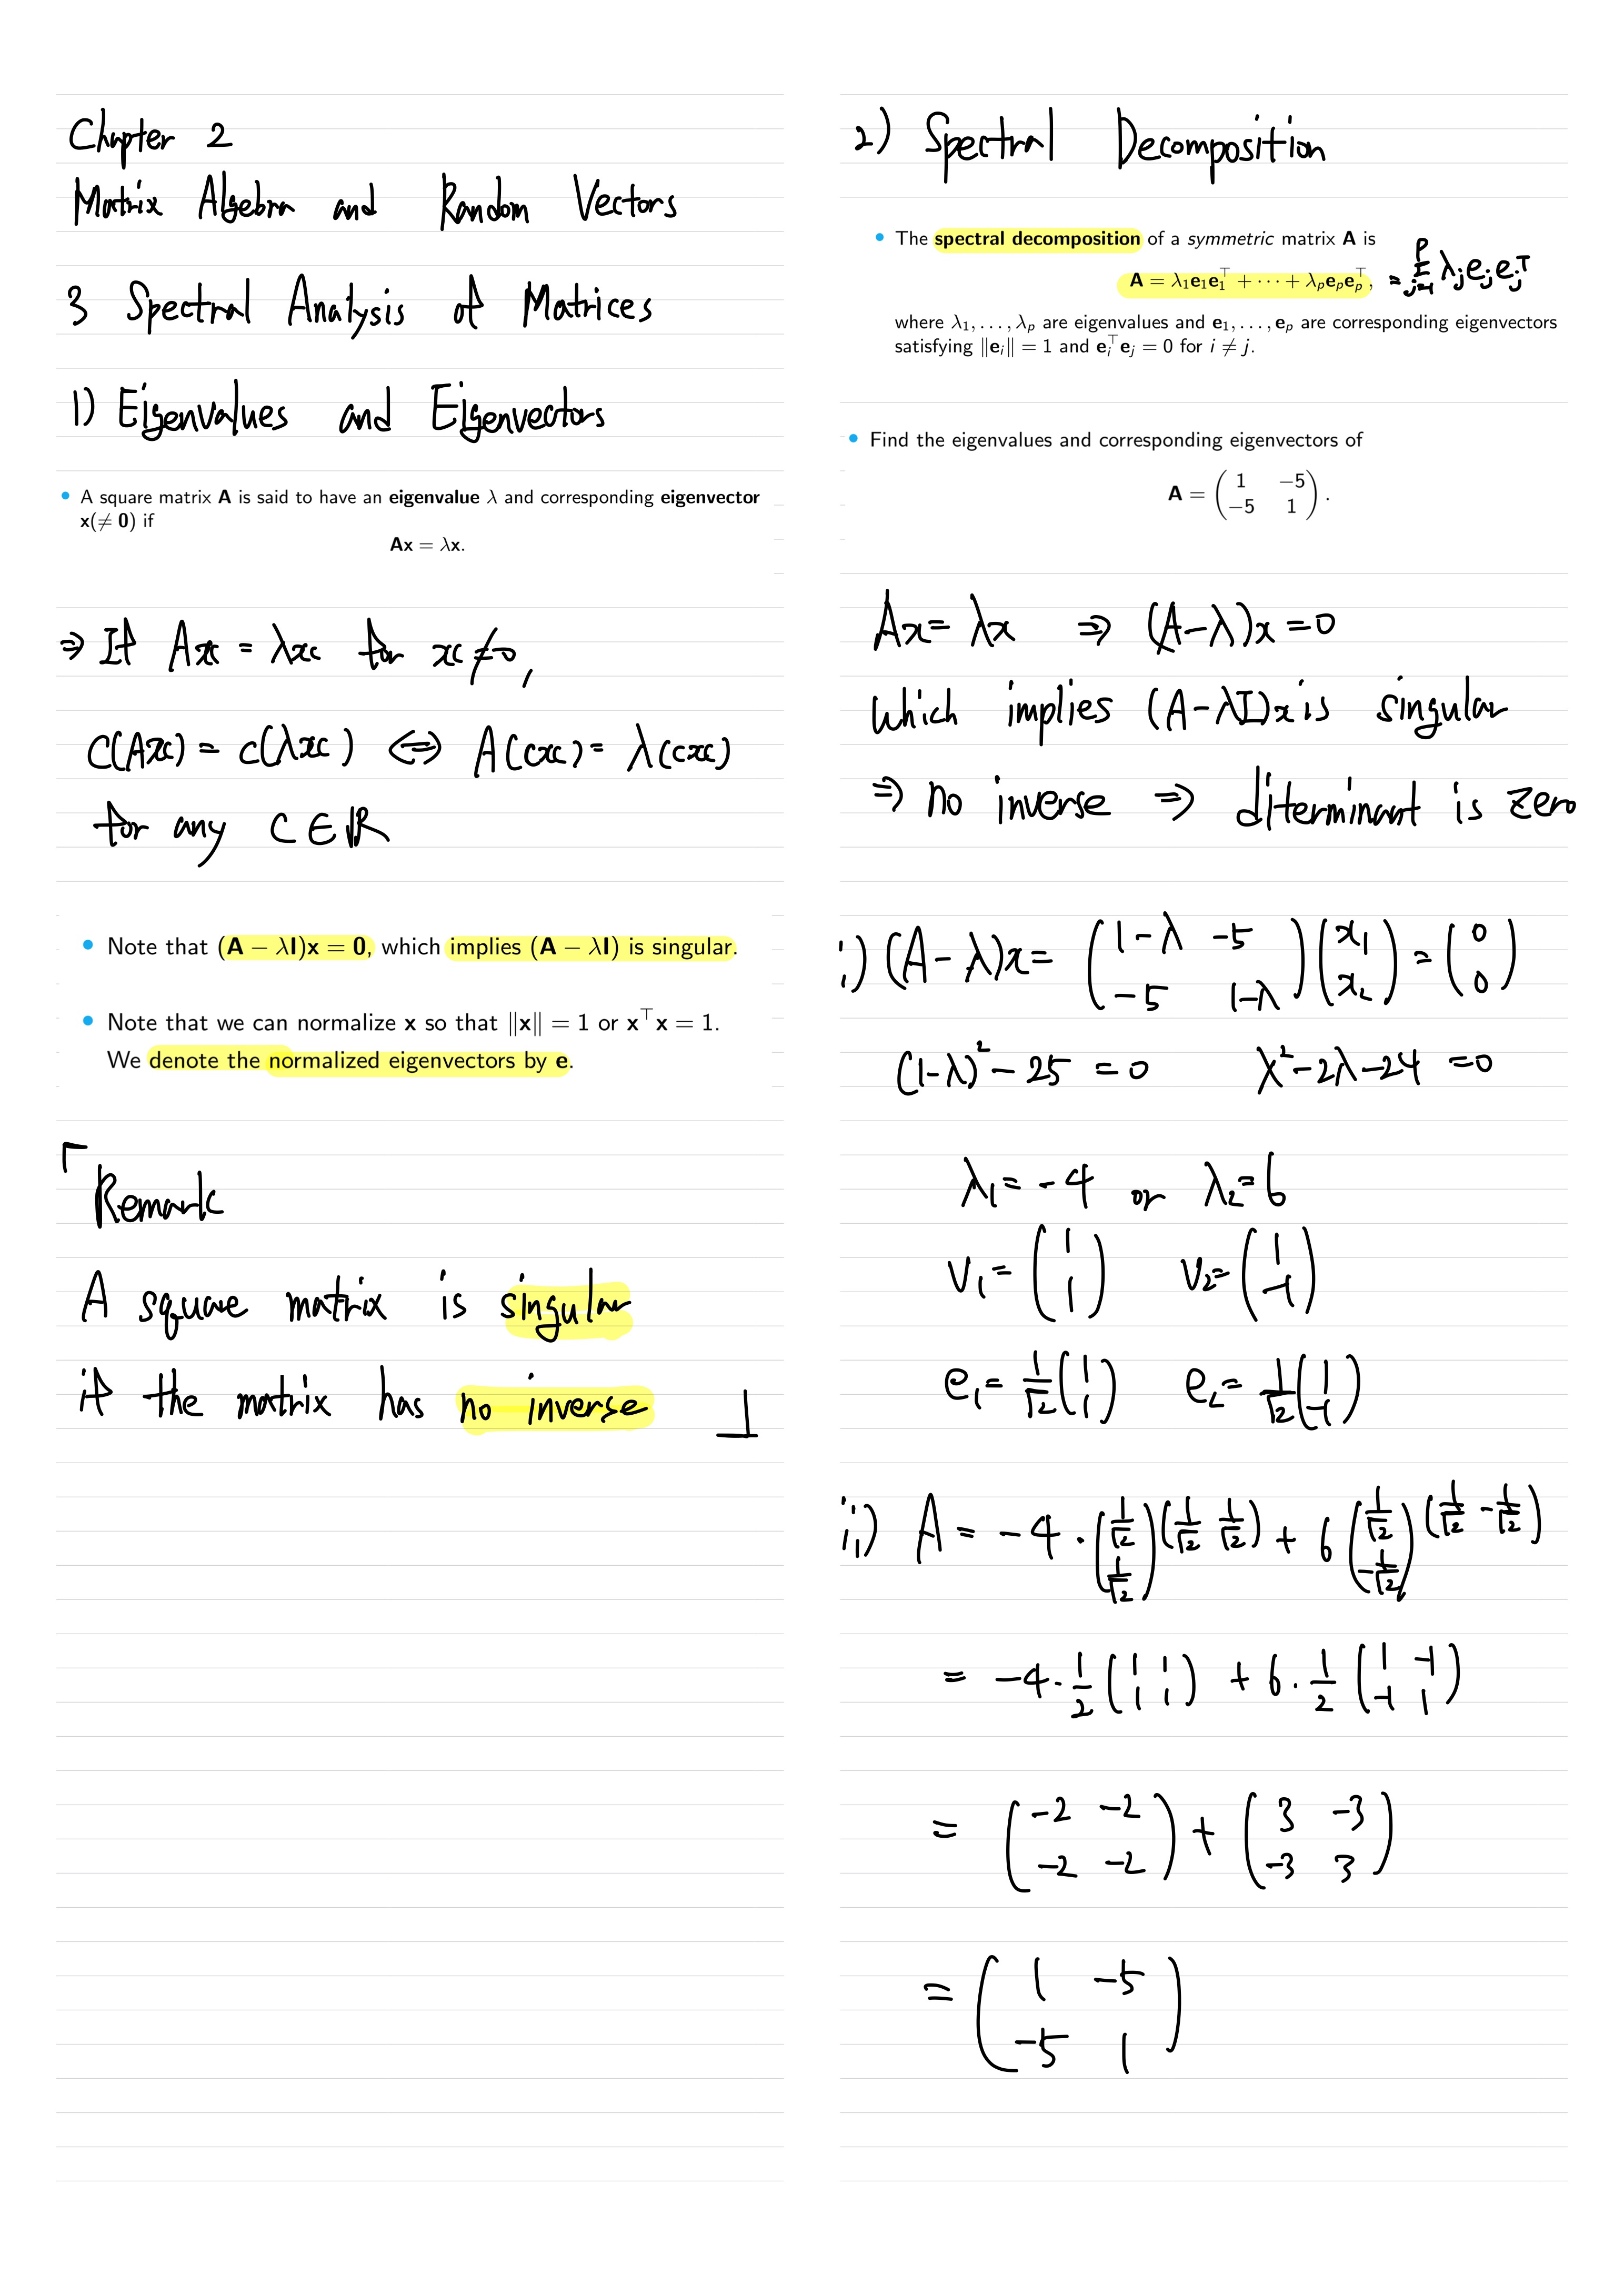 Chapter 2
Matrix Algebra and Random Vectors
3 Spectral Analysis of Matrices
1) Eigenvalues and Eigenvectors
• A square matrix A is said to have an eigenvalue λ and corresponding eigenvector
x(≠ 0) if
Ax = λx.
⇒ If Ax = λx for x≠0,
C(Ax) = c(λx) ⇔ A(cx) = λ(cx)
for any C∈ℝ
• Note that (A − λI)x = 0, which implies (A − λI) is singular.
• Note that we can normalize x so that ‖x‖ = 1 or x⊤x = 1.
We denote the normalized eigenvectors by e.
「Remark
A square matrix is singular
if the matrix has no inverse 」
2) Spectral Decomposition
• The spectral decomposition of a symmetric matrix A is
A = λ₁e₁e₁⊤ + ⋯ + λₚeₚeₚ⊤, = Σ_{j=1}^{p} λⱼeⱼeⱼᵀ
where λ₁, . . . , λₚ are eigenvalues and e₁, . . . , eₚ are corresponding eigenvectors
satisfying ‖eᵢ‖ = 1 and eᵢ⊤eⱼ = 0 for i ≠ j.
• Find the eigenvalues and corresponding eigenvectors of
A = (1 −5
−5 1).
Ax = λx ⇒ (A−λ)x = 0
which implies (A−λI)x is singular
⇒ no inverse ⇒ diterminant is zero
i) (A−λ)x = (1−λ −5
−5 1−λ)(x₁
x₂) = (0
0)
(1−λ)² − 25 = 0 λ²−2λ−24 = 0
λ₁ = −4 or λ₂ = 6
V₁ = (1
1) V₂ = (1
−1)
e₁ = 1/√2 (1
1) e₂ = 1/√2 (1
−1)
ii) A = −4 · (1/√2
1/√2)(1/√2 1/√2) + 6 (1/√2
−1/√2)(1/√2 −1/√2)
= −4 · 1/2 (1 1
1 1) + 6 · 1/2 (1 −1
−1 1)
= (−2 −2
−2 −2) + (3 −3
−3 3)
= (1 −5
−5 1)